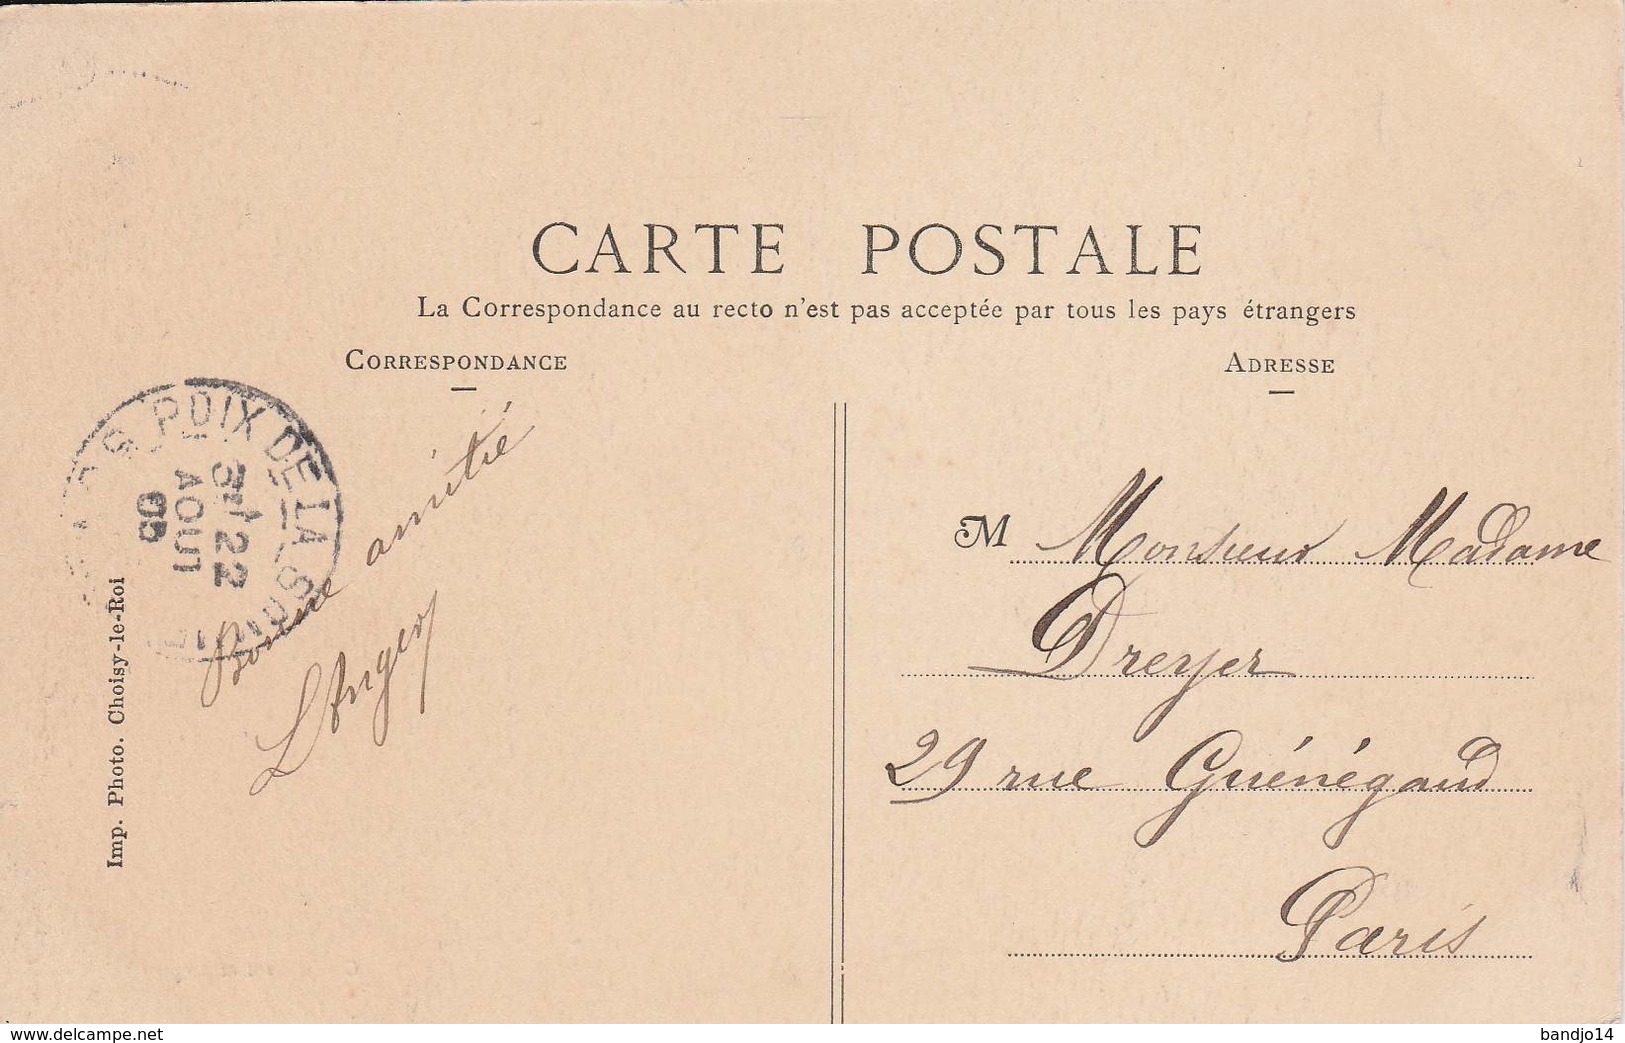 CARTE POSTALE
La Correspondance au recto n'est pas acceptée par tous les pays étrangers
CORRESPONDANCE
ADRESSE
POIX DE LA SOMME
3E 22
AOUT
05
Bonne amitié
L Anger
M Monsieur Madame
Dreyer
29 rue Guénégaud
Paris
Imp. Photo. Choisy-le-Roi
www.delcampe.net
bandjo14